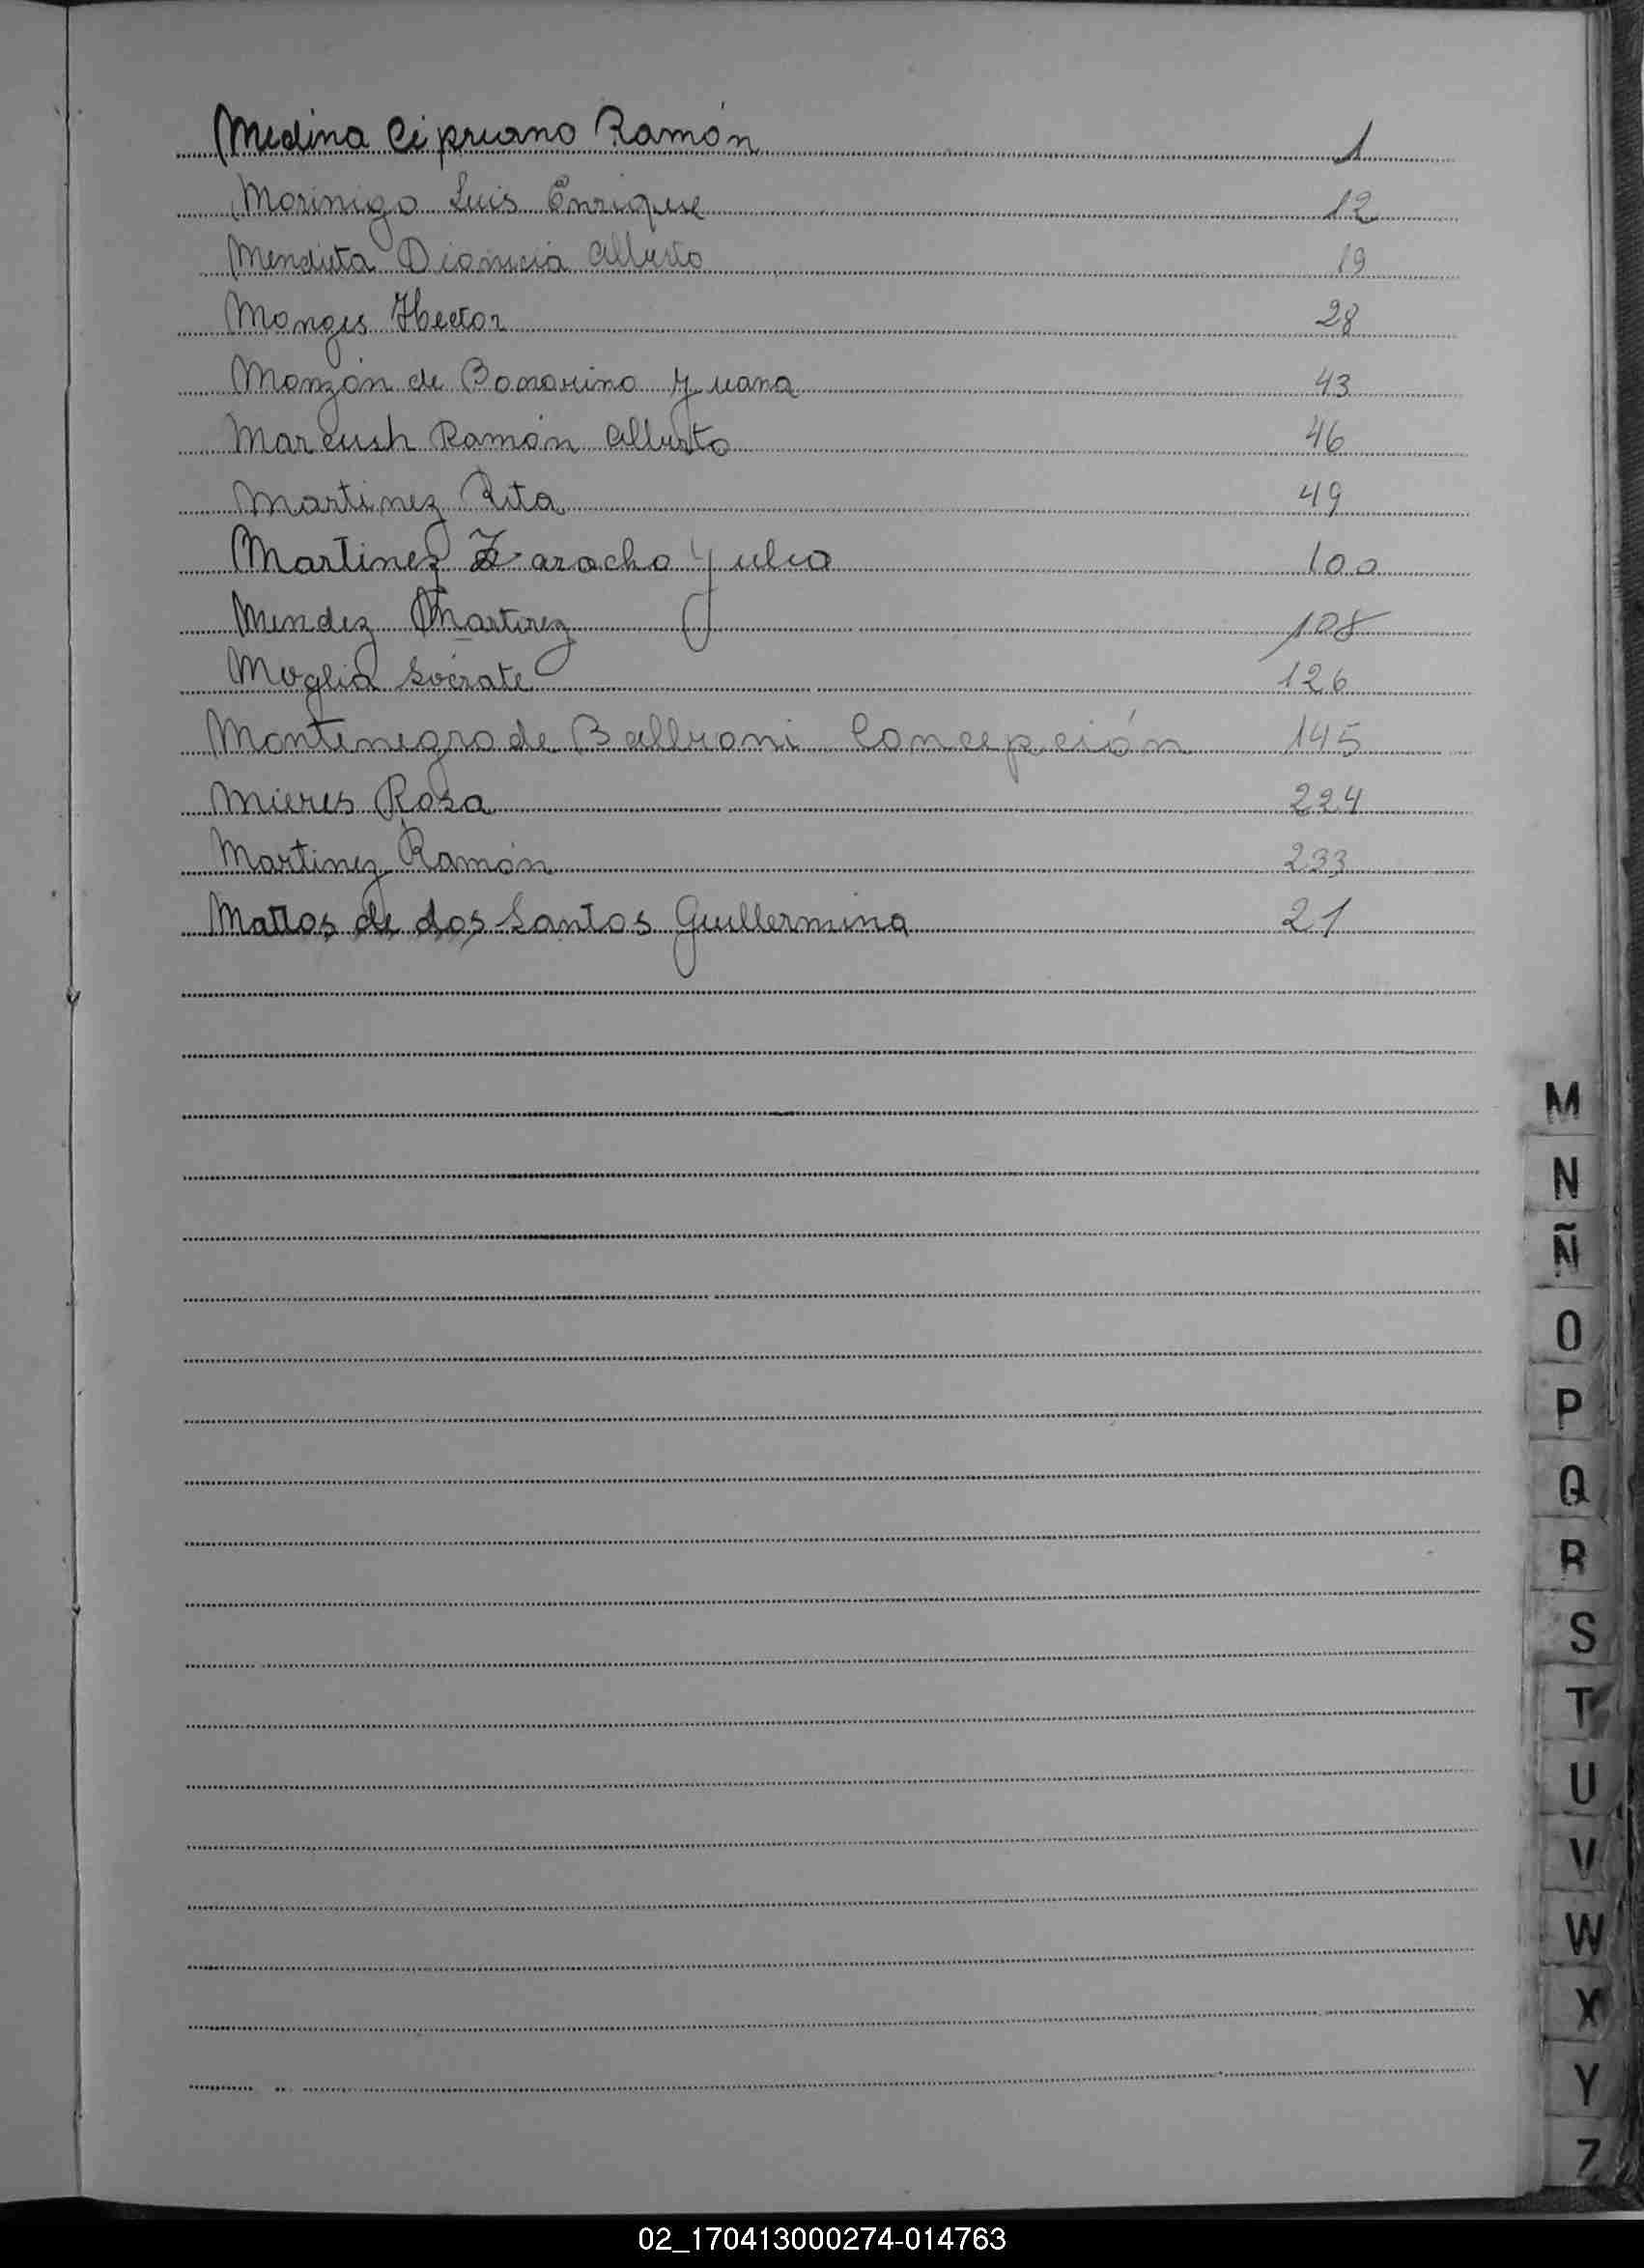 Medina Cipriano Ramón 1
Morinigo Luis Enrique 12
Mendieta Dionicia Alberto 19
Monges Hector 28
Monzón de Bonorino Juana 43
Marcush Ramón Alberto 46
Martinez Rita 49
Martinez Zaracho Julio 100
Mendez Martirez 108
Moglia Socrate 126
Montenegro de Concepción 145
Mieres Rosa 224
Martinez Ramón 233
Mattos de dos Santos Guillermina 21
M
N
Ñ
O
P
Q
R
S
T
U
V
W
X
Y
Z
02_170413000274-014763